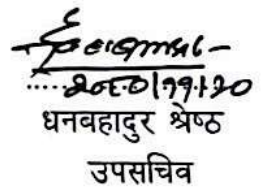 २०८०।११।२०
धनबहादुर श्रेष्ठ
उपसचिव